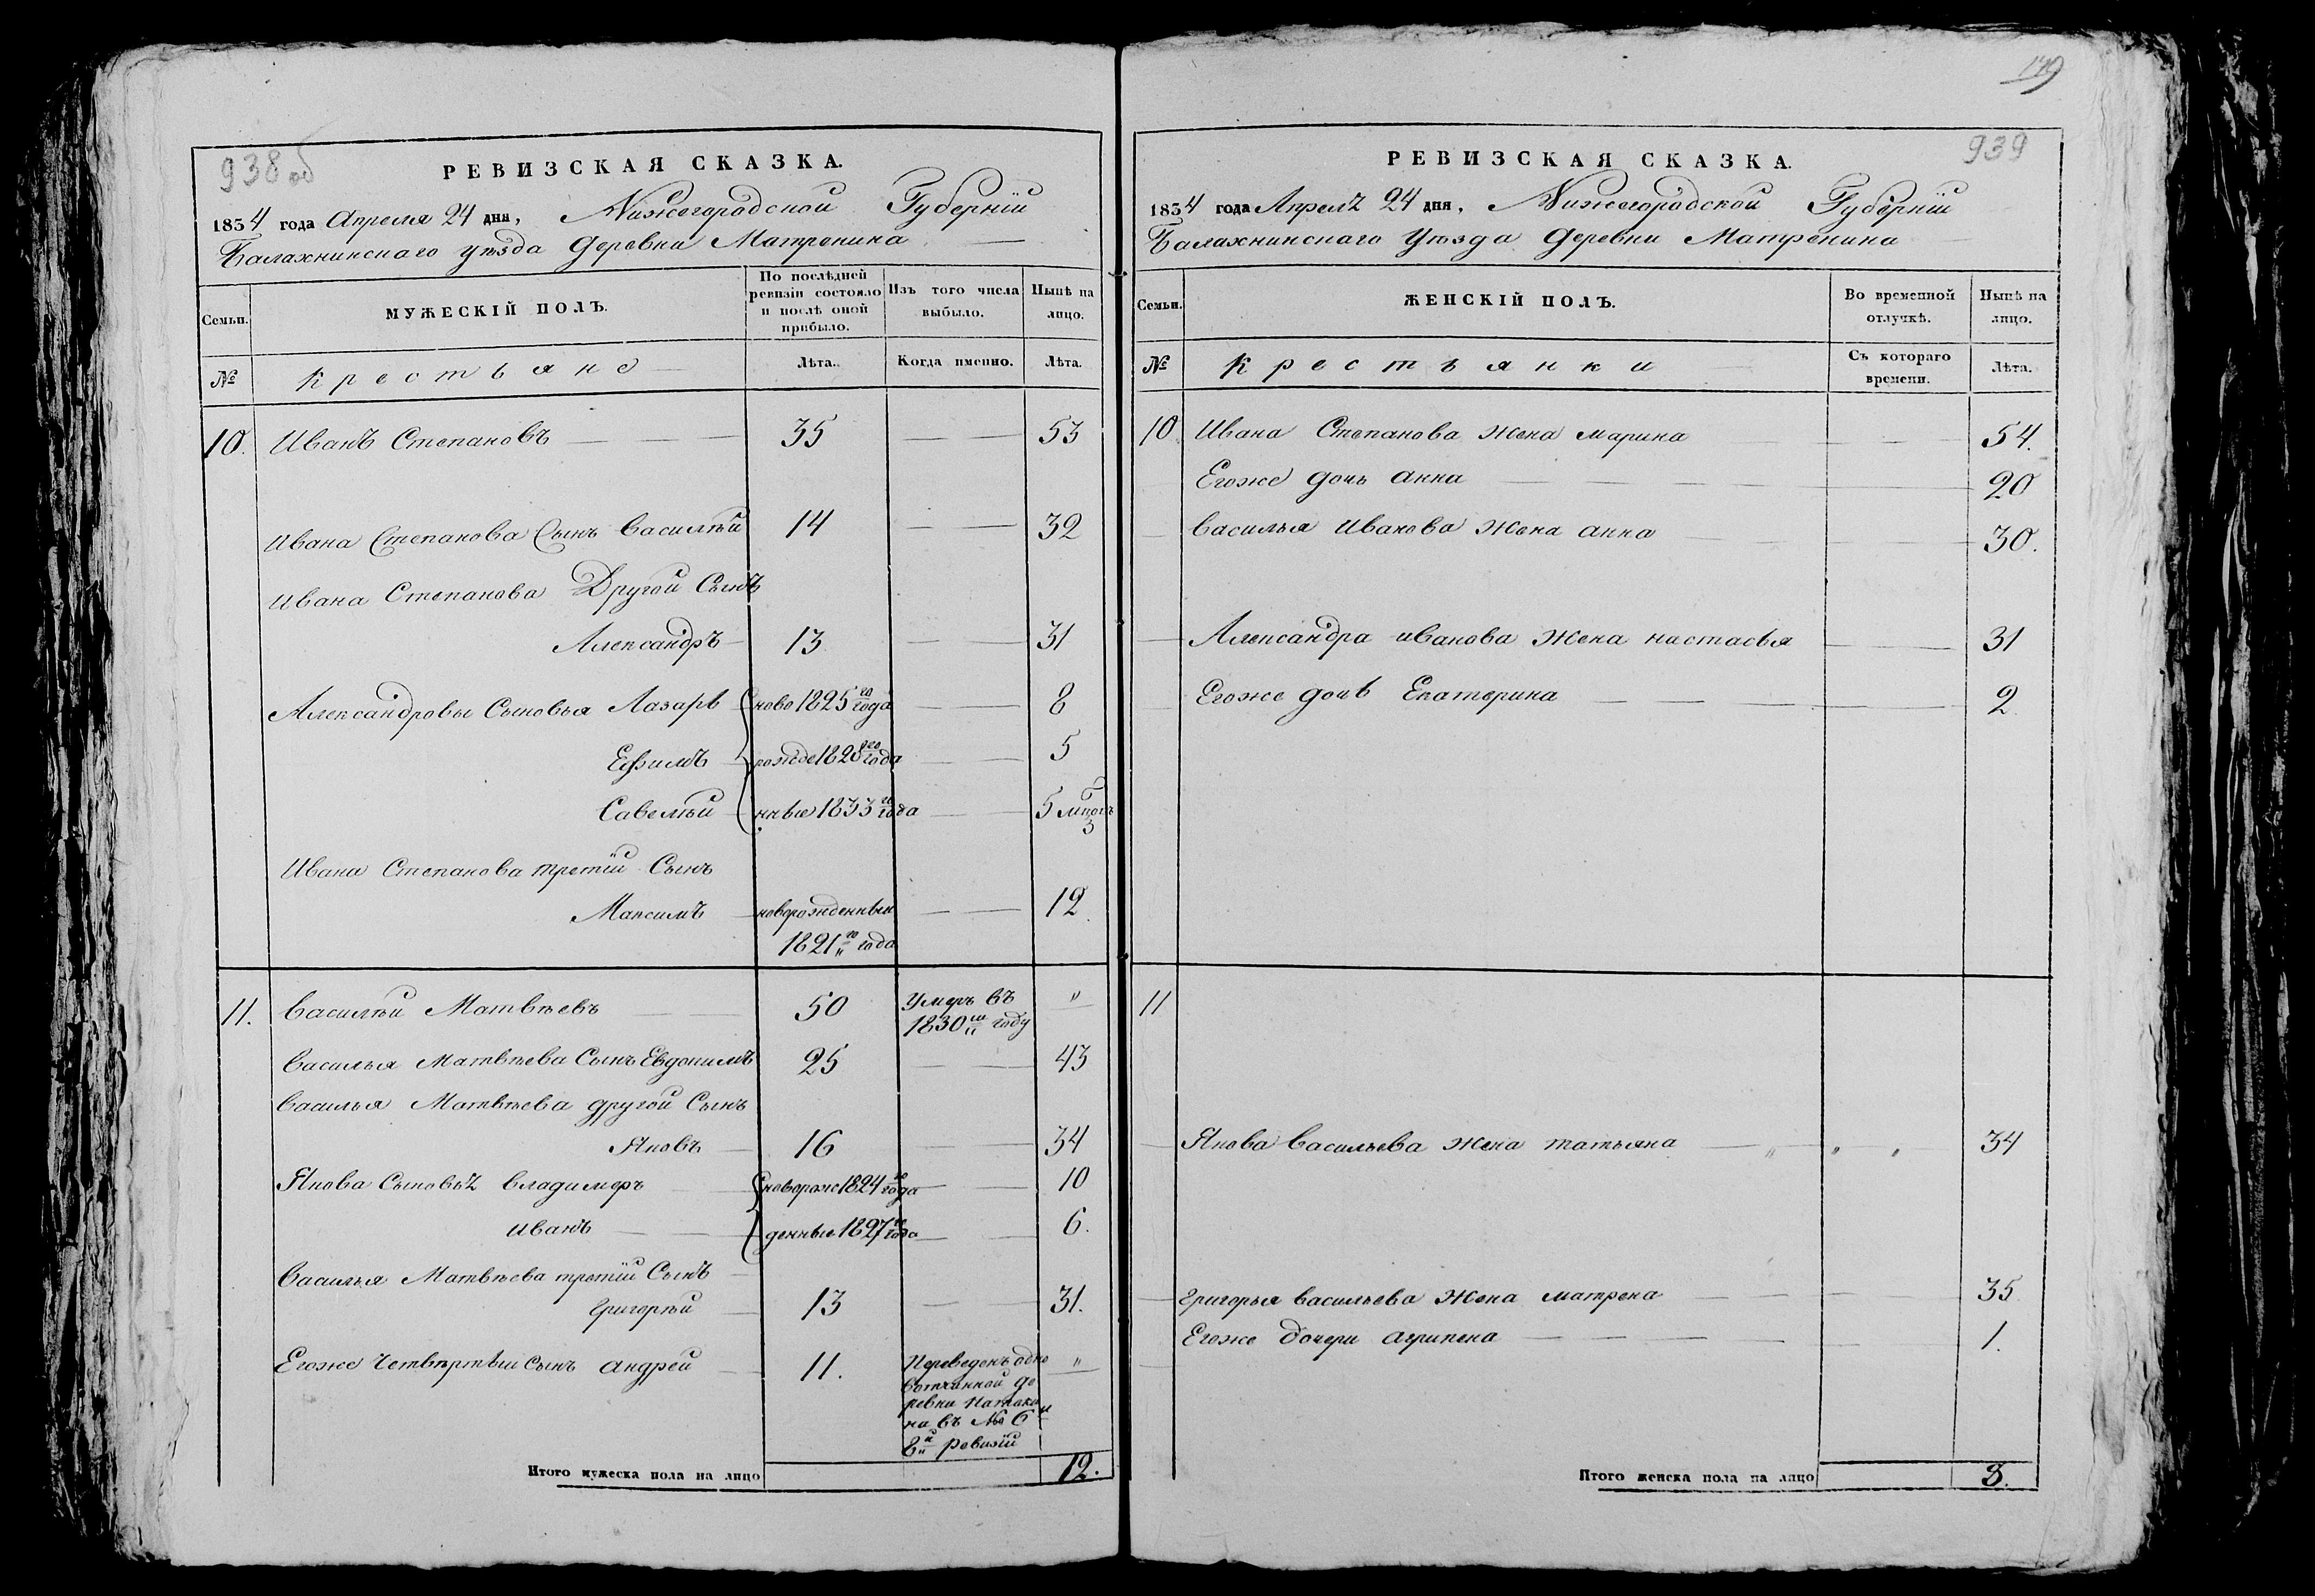 938 об
РЕВИЗСКАЯ СКАЗКА.
1834 года Апреля 24 дня, Нижегородской Губерніи
Балахнинскаго уѣзда деревни Матренина
Семьи.
МУЖЕСКІЙ ПОЛЪ.
По послѣдней ревизіи состояло и послѣ оной прибыло.
Изъ того числа выбыло.
Нынѣ на лицо.
№
Крестьяне
Лѣта.
Когда именно.
Лѣта.
10. Иванъ Степановъ 35 53
Ивана Степанова Сынъ Василѣй 14 32
Ивана Степанова Другой Сынъ
Александръ 13 31
Александровы Сыновья Лазарь ново 1825го года 8
Ефимъ рожде 1828го года 5
Савелѣй нные 1833го года 5 мцовъ
Ивана Степанова третій Сынъ
Максимъ новорожденный 12
1821го года
11. Василѣй Матвѣевъ 50 Умеръ въ "
1830мъ году
Василья Матвѣева Сынъ Евдокимъ 25 43
Василья Матвѣева другой Сынъ
Яковъ 16 34
Якова Сыновья Владимеръ новорож 1824го года 10
Иванъ денные 1827го года 6.
Василья Матвѣева третій Сынъ
Григорѣй 13 31.
Егоже Четвертый сынъ Андрей 11. Переведенъ одно "
вотчинной де
ревни
на въ № 6
8й ревизіи
Итого мужеска пола на лицо 12.
149
939
РЕВИЗСКАЯ СКАЗКА.
1834 года Апреля 24 дня, Нижегородской Губерніи
Балахнинскаго Уѣзда Деревни Матренина
Семьи.
ЖЕНСКІЙ ПОЛЪ.
Во временной отлучкѣ.
Нынѣ на лицо.
№
Крестьянки
Съ котораго времени.
Лѣта.
10 Ивана Степанова Жена Марина 54.
Егоже дочь Анна 20
Василья Иванова Жена Анна 30.
Александра Иванова Жена Настасья 31
Егоже дочь Екатерина 2
11
Якова Васильева Жена Татьяна " " " 34
Григорья Васильева Жена Матрена 35
Егоже дочери Агрипена 1.
Итого женска пола на лицо 8.